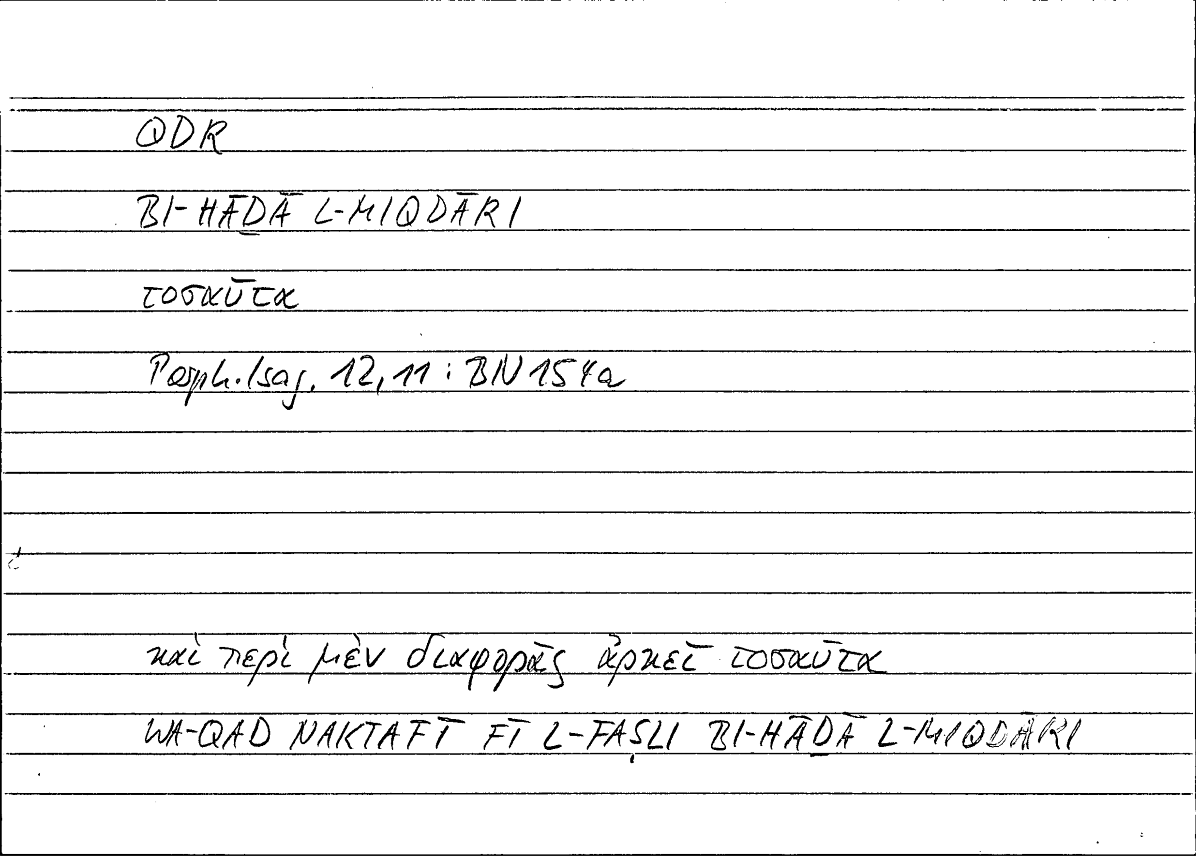 QDR
BI-HĀḎĀ L-MIQDĀRI
τοσαῦτα
Porph. Isag. 12,11 : BN 154a
καὶ περὶ μὲν διαφορᾶς ἀρκεῖ τοσαῦτα
WA-QAD NAKTAFĪ FĪ L-FAṢLI BI-HĀḎĀ L-MIQDĀRI